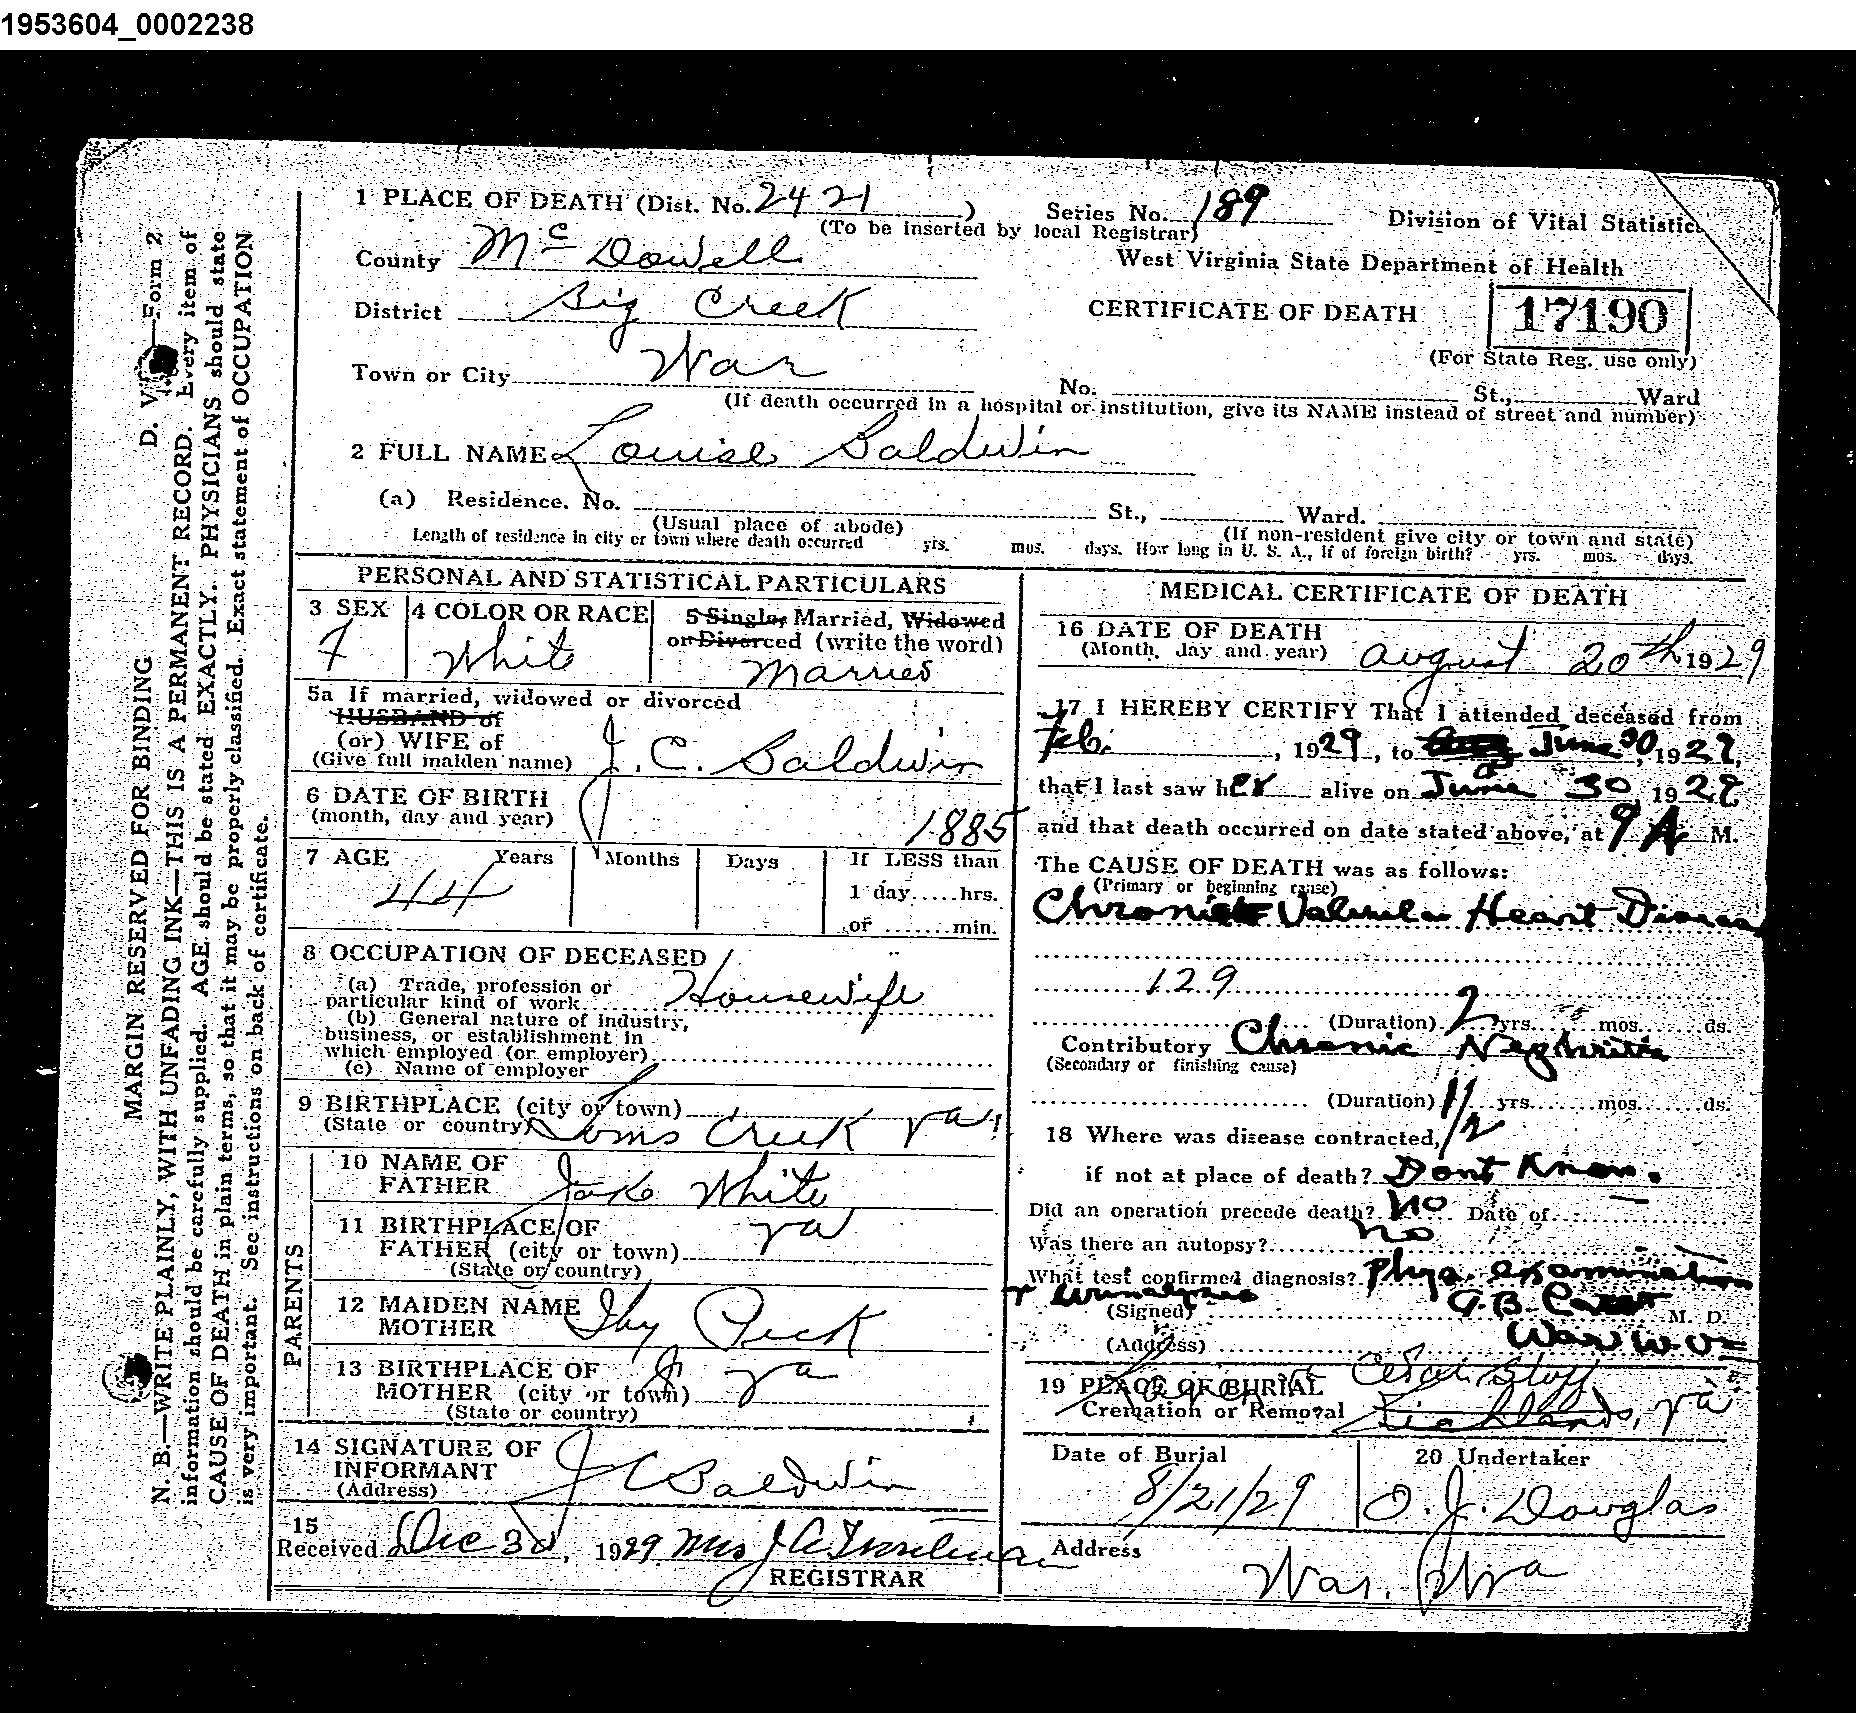 1953604_0002238
1 PLACE OF DEATH (Dist. No. 2421 ) Series No. 189 Division of Vital Statistics
(To be inserted by local Registrar)
County Mc Dowell West Virginia State Department of Health
District Big Creek CERTIFICATE OF DEATH 17190
(For State Reg. use only)
Town or City War No. St., Ward
(If death occurred in a hospital or institution, give its NAME instead of street and number)
2 FULL NAME Louise Baldwin
(a) Residence. No. St., Ward.
(Usual place of abode) (If non-resident give city or town and state)
Length of residence in city or town where death occurred yrs. mos. days. How long in U. S. A., if of foreign birth? yrs. mos. days.
PERSONAL AND STATISTICAL PARTICULARS
3 SEX 4 COLOR OR RACE 5 Single, Married, Widowed
or Divorced (write the word)
F White Married
5a If married, widowed or divorced
HUSBAND of
(or) WIFE of
(Give full maiden name) J. C. Baldwin
6 DATE OF BIRTH
(month, day and year) 1885
7 AGE Years Months Days If LESS than
44 1 day.....hrs.
or .......min.
8 OCCUPATION OF DECEASED
(a) Trade, profession or
particular kind of work Housewife
(b) General nature of industry,
business, or establishment in
which employed (or employer)
(c) Name of employer
9 BIRTHPLACE (city or town)
(State or country) Toms Creek Va.
PARENTS
10 NAME OF
FATHER Jake White
11 BIRTHPLACE OF
FATHER (city or town) Va
(State or country)
12 MAIDEN NAME
MOTHER Peck
13 BIRTHPLACE OF
MOTHER (city or town) Va
(State or country)
14 SIGNATURE OF
INFORMANT J C Baldwin
(Address)
15
Received Dec 30, 1929 Mrs J C
REGISTRAR
MEDICAL CERTIFICATE OF DEATH
16 DATE OF DEATH
(Month, day and year) August 20th 1929
17 I HEREBY CERTIFY That I attended deceased from
Feb. , 1929, to June 30, 1929,
that I last saw her alive on June 30 1929
and that death occurred on date stated above, at 9 A M.
The CAUSE OF DEATH was as follows:
(Primary or beginning cause)
Chronic Valvular Heart Disease
129
(Duration) 2 yrs. mos. ds.
Contributory Chronic Nephritis
(Secondary or finishing cause)
(Duration) 1 1/2 yrs. mos. ds.
18 Where was disease contracted,
if not at place of death? Dont Know.
Did an operation precede death? No Date of —
Was there an autopsy? no
What test confirmed diagnosis? Phys. examination
+ Urinalysis
(Signed) G. B. M. D.
(Address) War W. Va
19 PLACE OF BURIAL Cedar Bluff
Cremation or Removal Richlands, Va
Date of Burial 20 Undertaker
8/21/29 O. J. Douglas
Address
War, W Va
D. V. S.—Form 2
MARGIN RESERVED FOR BINDING
N. B.—WRITE PLAINLY, WITH UNFADING INK—THIS IS A PERMANENT RECORD. Every item of
information should be carefully supplied. AGE should be stated EXACTLY. PHYSICIANS should state
CAUSE OF DEATH in plain terms, so that it may be properly classified. Exact statement of OCCUPATION
is very important. See instructions on back of certificate.